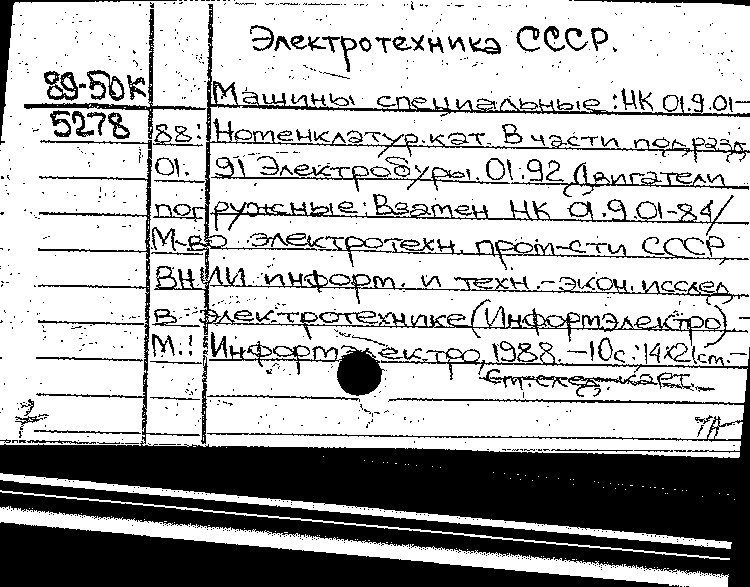 Электротехника СССР.
89-50К Машины специальные: НК 01.9.01-
5278 88: Номенклатур. кат. В части подразд.
01. 91 Электробуры. 01.92 Двигатели
погружные: Взамен НК 01.9.01-84/
М-во электротехн. пром-сти СССР,
ВНИИ информ. и техн.-экон. исслед.
в электротехнике (Информэлектро).-
М.: Информэлектро, 1988. -10с.; 14х21см.-
См. след. карт.